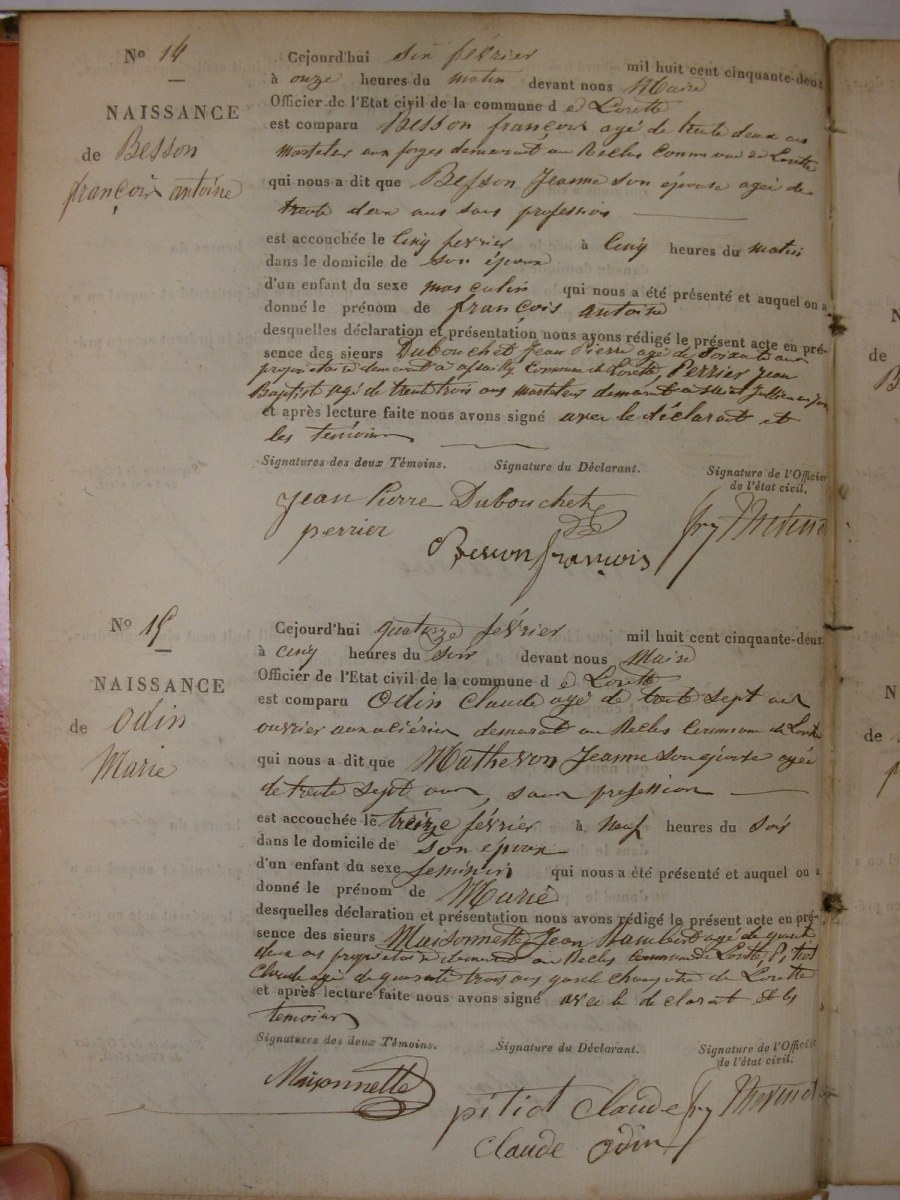 No 14
NAISSANCE
de Besson
françois antoine
Cejourd'hui six février mil huit cent cinquante-deux
à onze heures du matin devant nous Maire
Officier de l'Etat civil de la commune d e Lorette
est comparu Besson françois agé de trente deux ans
marteler aux forges demeurant au Reclus Commune de Lorette
qui nous a dit que Besson Jeanne son épouse agée de
trente deux ans sans profession
est accouchée le Cinq février à Cinq heures du matin
dans le domicile de son époux
d'un enfant du sexe masculin qui nous a été présenté et auquel on a
donné le prénom de françois antoine
desquelles déclaration et présentation nous avons rédigé le présent acte en pré-
sence des sieurs Dubouchet Jean Pierre agé de soixante ans
propriétaire demeurant à assailly Commune de Lorette, Perrier Jean
Baptiste agé de trente trois ans marteleur demeurant a Saint Jullien en Jarret
et après lecture faite nous avons signé avec le déclarant et
les temoins
Signatures des deux Témoins. Signature du Déclarant. Signature de l'Officier
de l'état civil.
Jean Pierre Dubouchet
perrier
Besson françois
No 15
NAISSANCE
de Odin
Marie
Cejourd'hui quatorze février mil huit cent cinquante-deux
à cinq heures du soir devant nous Maire
Officier de l'Etat civil de la commune d e Lorette
est comparu Odin Claude agé de trente sept ans
ouvrier aux aciéries demeurant au Reclus Commune de Lorette
qui nous a dit que Matheron Jeanne son épouse agée
de trente sept ans, sans profession
est accouchée le treize février à neuf heures du soir
dans le domicile de son époux
d'un enfant du sexe feminin qui nous a été présenté et auquel on a
donné le prénom de Marie
desquelles déclaration et présentation nous avons rédigé le présent acte en pré-
sence des sieurs Maisonnette Jean agé de quarante
deux ans propriétaire demeurant au Reclus Commune de Lorette, Pitiot
Claude agé de quarante trois ans garde champêtre de Lorette
et après lecture faite nous avons signé avec le declarant et les
temoins
Signatures des deux Témoins. Signature du Déclarant. Signature de l'Officier
de l'état civil.
Maisonnette
pitiot Claude
Claude odin